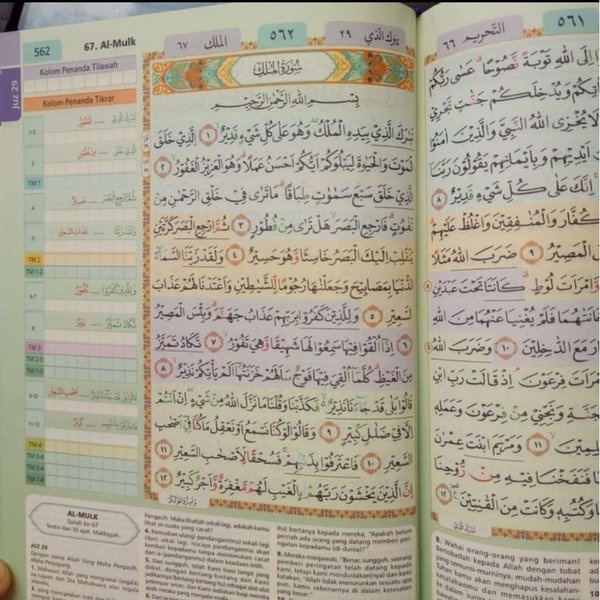 562
67. Al-Mulk
الملك ٦٧
٥٦٢
تبرك الذي ٢٩
Juz 29
Kolom Penanda Tilawah
Kolom Penanda Tikrar
سُورَةُ الْمُلْكِ
بِسْمِ اللهِ الرَّحْمٰنِ الرَّحِيْمِ
تَبٰرَكَ الَّذِيْ بِيَدِهِ الْمُلْكُ وَهُوَ عَلٰى كُلِّ شَيْءٍ قَدِيْرٌ ۙ ١ الَّذِيْ خَلَقَ
الْمَوْتَ وَالْحَيٰوةَ لِيَبْلُوَكُمْ اَيُّكُمْ اَحْسَنُ عَمَلًا ۗ وَهُوَ الْعَزِيْزُ الْغَفُوْرُ ۙ ٢
الَّذِيْ خَلَقَ سَبْعَ سَمٰوٰتٍ طِبَاقًا ۗ مَا تَرٰى فِيْ خَلْقِ الرَّحْمٰنِ مِنْ
تَفٰوُتٍ ۗ فَارْجِعِ الْبَصَرَ هَلْ تَرٰى مِنْ فُطُوْرٍ ٣ ثُمَّ ارْجِعِ الْبَصَرَ كَرَّتَيْنِ
يَنْقَلِبْ اِلَيْكَ الْبَصَرُ خَاسِئًا وَّهُوَ حَسِيْرٌ ٤ وَلَقَدْ زَيَّنَّا السَّمَاۤءَ
الدُّنْيَا بِمَصَابِيْحَ وَجَعَلْنٰهَا رُجُوْمًا لِّلشَّيٰطِيْنِ وَاَعْتَدْنَا لَهُمْ عَذَابَ
السَّعِيْرِ ٥ وَلِلَّذِيْنَ كَفَرُوْا بِرَبِّهِمْ عَذَابُ جَهَنَّمَ ۗ وَبِئْسَ الْمَصِيْرُ
٦ اِذَآ اُلْقُوْا فِيْهَا سَمِعُوْا لَهَا شَهِيْقًا وَّهِيَ تَفُوْرُ ۙ ٧ تَكَادُ تَمَيَّزُ
مِنَ الْغَيْظِ ۗ كُلَّمَآ اُلْقِيَ فِيْهَا فَوْجٌ سَاَلَهُمْ خَزَنَتُهَآ اَلَمْ يَأْتِكُمْ نَذِيْرٌ
٨ قَالُوْا بَلٰى قَدْ جَاۤءَنَا نَذِيْرٌ ۙ فَكَذَّبْنَا وَقُلْنَا مَا نَزَّلَ اللهُ مِنْ شَيْءٍ ۖ اِنْ اَنْتُمْ
اِلَّا فِيْ ضَلٰلٍ كَبِيْرٍ ٩ وَقَالُوْا لَوْ كُنَّا نَسْمَعُ اَوْ نَعْقِلُ مَا كُنَّا فِيْٓ اَصْحٰبِ
السَّعِيْرِ ١٠ فَاعْتَرَفُوْا بِذَنْۢبِهِمْ ۚ فَسُحْقًا لِّاَصْحٰبِ السَّعِيْرِ ١١
اِنَّ الَّذِيْنَ يَخْشَوْنَ رَبَّهُمْ بِالْغَيْبِ لَهُمْ مَّغْفِرَةٌ وَّاَجْرٌ كَبِيْرٌ ١٢
1-2
تَبٰرَكَ الَّذِيْ .... الْغَفُوْرُ
3
الَّذِيْ خَلَقَ .... مِنْ فُطُوْرٍ
TM 1
ثُمَّ ارْجِعِ الْبَصَرَ .... حَسِيْرٌ
5
وَلَقَدْ زَيَّنَّا .... عَذَابَ السَّعِيْرِ
TM 2
TM 1-2
6-7
وَلِلَّذِيْنَ كَفَرُوْا .... تَفُوْرُ
تَكَادُ تَمَيَّزُ .... نَذِيْرٌ
TM 3
TM 2-3
TM 1-3
9-10
اَصْحٰبِ السَّعِيْرِ
11-12
كَبِيْرٌ
TM 4
TM 3-4
TM 2-4
TM 1-4
AL-MULK
Surah ke-67
Terdiri dari 30 ayat. Makkiyyah.
JUZ 29
Dengan nama Allah Yang Maha Pengasih,
Maha Penyayang.
1. Mahasuci Allah yang menguasai (segala)
kerajaan, dan Dia Mahakuasa atas segala
Pengasih. Maka lihatlah sekali lagi, adakah kamu
lihat se-suatu yang cacat?
4. Kemudian ulangi pandangan(mu) sekali lagi
(dan) sekali lagi, niscaya pandanganmu akan
kembali kepadamu tanpa menemukan cacat
dan ia (pandanganmu) dalam keadaan letih.
5. Dan sungguh, telah Kami hiasi langit yang
dekat, dengan bintang-bintang dan Kami
jadikannya (bintang-bintang itu) sebagai alat-alat
itu) bertanya kepada mereka, "Apakah belum
pernah ada orang yang datang memberi peri-
ngatan kepadamu (di dunia)?"
9. Mereka menjawab, "Benar, sungguh, seorang
pemberi peringatan telah datang kepada
kami, tetapi kami mendustakan(nya) dan kami
katakan, "Allah tidak menurunkan sesuatu apa
٥٦١
التحريم ٦٦
اِلَى اللهِ تَوْبَةً نَّصُوْحًا ۗ عَسٰى رَبُّكُمْ
وَيُدْخِلَكُمْ جَنّٰتٍ تَجْرِيْ
لَا يُخْزِى اللهُ النَّبِيَّ وَالَّذِيْنَ اٰمَنُوْا
اَيْدِيْهِمْ وَبِاَيْمَانِهِمْ يَقُوْلُوْنَ رَبَّنَآ
اِنَّكَ عَلٰى كُلِّ شَيْءٍ قَدِيْرٌ ٨
الْكُفَّارَ وَالْمُنٰفِقِيْنَ وَاغْلُظْ عَلَيْهِمْ
الْمَصِيْرُ ٩ ضَرَبَ اللهُ مَثَلًا
وَّامْرَاَتَ لُوْطٍ ۗ كَانَتَا تَحْتَ عَبْدَيْنِ
فَخَانَتٰهُمَا فَلَمْ يُغْنِيَا عَنْهُمَا مِنَ
مَعَ الدَّاخِلِيْنَ ١٠ وَضَرَبَ اللهُ
امْرَاَتَ فِرْعَوْنَ ۘ اِذْ قَالَتْ رَبِّ ابْنِ
الْجَنَّةِ وَنَجِّنِيْ مِنْ فِرْعَوْنَ وَعَمَلِهٖ
١١ وَمَرْيَمَ ابْنَتَ عِمْرٰنَ
فَنَفَخْنَا فِيْهِ مِنْ رُّوْحِنَا
وَكُتُبِهٖ وَكَانَتْ مِنَ الْقٰنِتِيْنَ ١٢
8. Wahai orang-orang yang beriman!
mudah-mudahan
Tuhan kamu akan menghapus kesalahan-